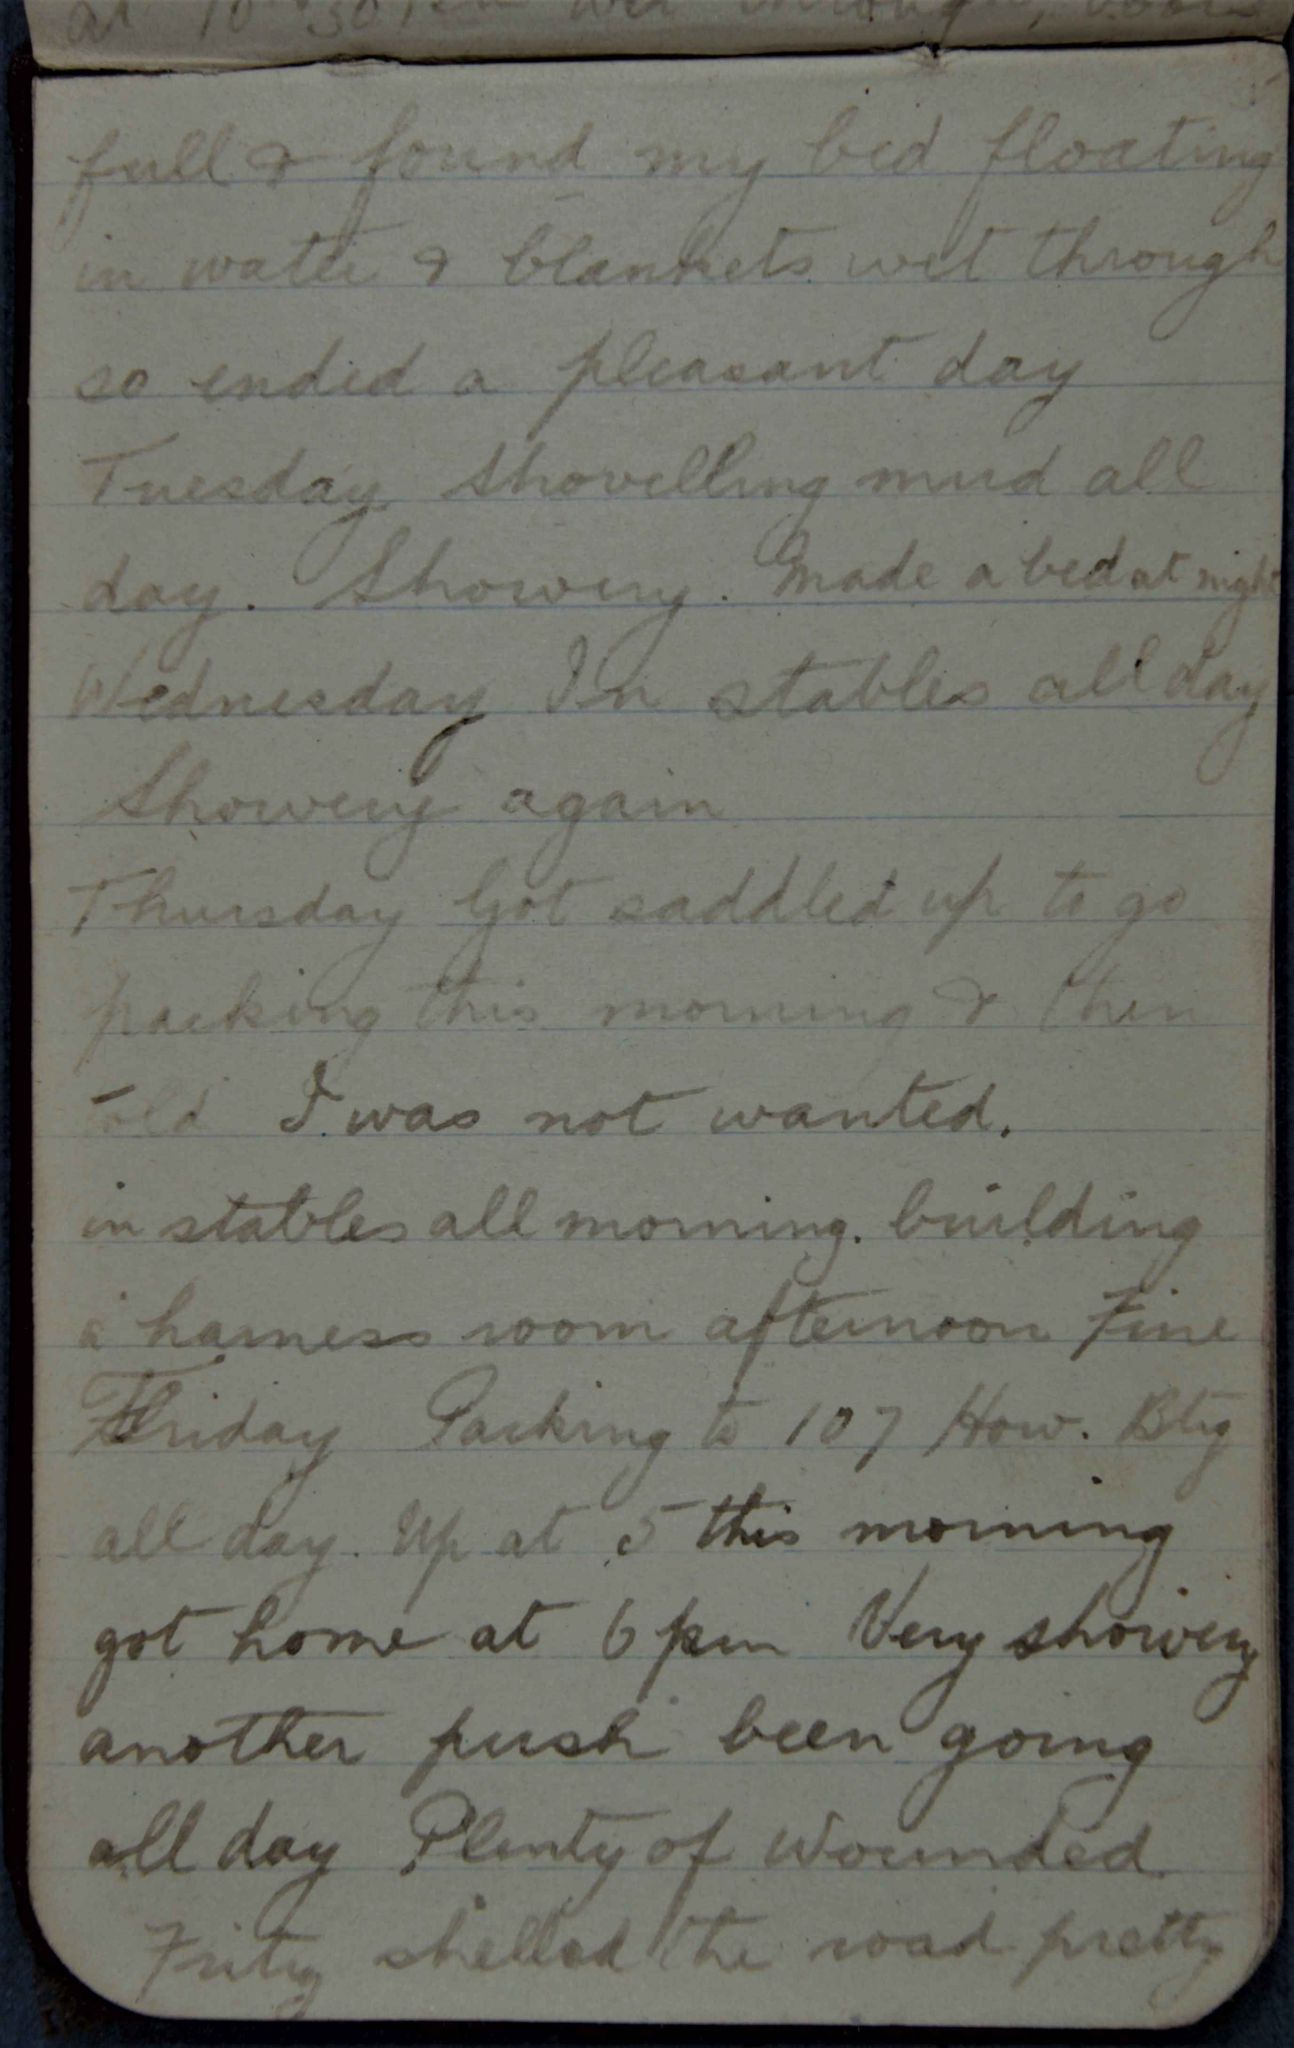 at 10 30 pm wet through,
full & found my bed floating
in water & blankets wet through
so ended a pleasant day
Tuesday Shovelling mud all
day. Showery. Made a bed at night
Wednesday In stables all day
Showery again
Thursday Got saddled up to go
packing this morning & then
told I was not wanted.
in stables all morning. building
a harness room afternoon Fine
Friday Packing to 107 How. Bty
all day. Up at 5 this morning
got home at 6 pm Very showery
another push been going
all day Plenty of wounded
Fritz shelled the road pretty